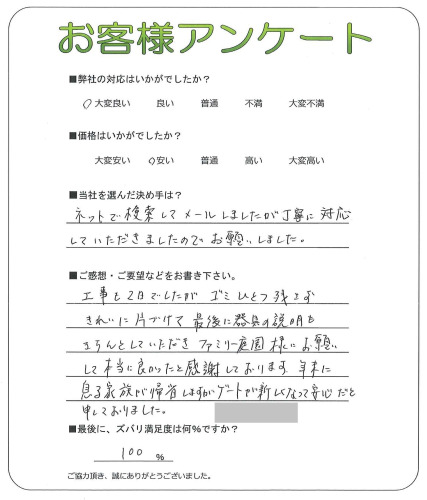 お客様アンケート
■弊社の対応はいかがでしたか?
大変良い 良い 普通 不満 大変不満
■価格はいかがでしたか?
大変安い 安い 普通 高い 大変高い
■当社を選んだ決め手は?
ネットで検索してメールしましたが丁寧に対応
していただきましたのでお願いしました。
■ご感想・ご要望などをお書き下さい。
工事も2日でしたが ゴミひとつ残さず
きれいに片づけて 最後に器具の説明も
きちんとしていただき ファミリー庭園様にお願い
して本当に良かったと感謝しております 年末に
息子家族が帰省しますがゲートが新しくなって安心だと
申しておりました。
■最後に、ズバリ満足度は何%ですか?
100 %
ご協力頂き、誠にありがとうございました。